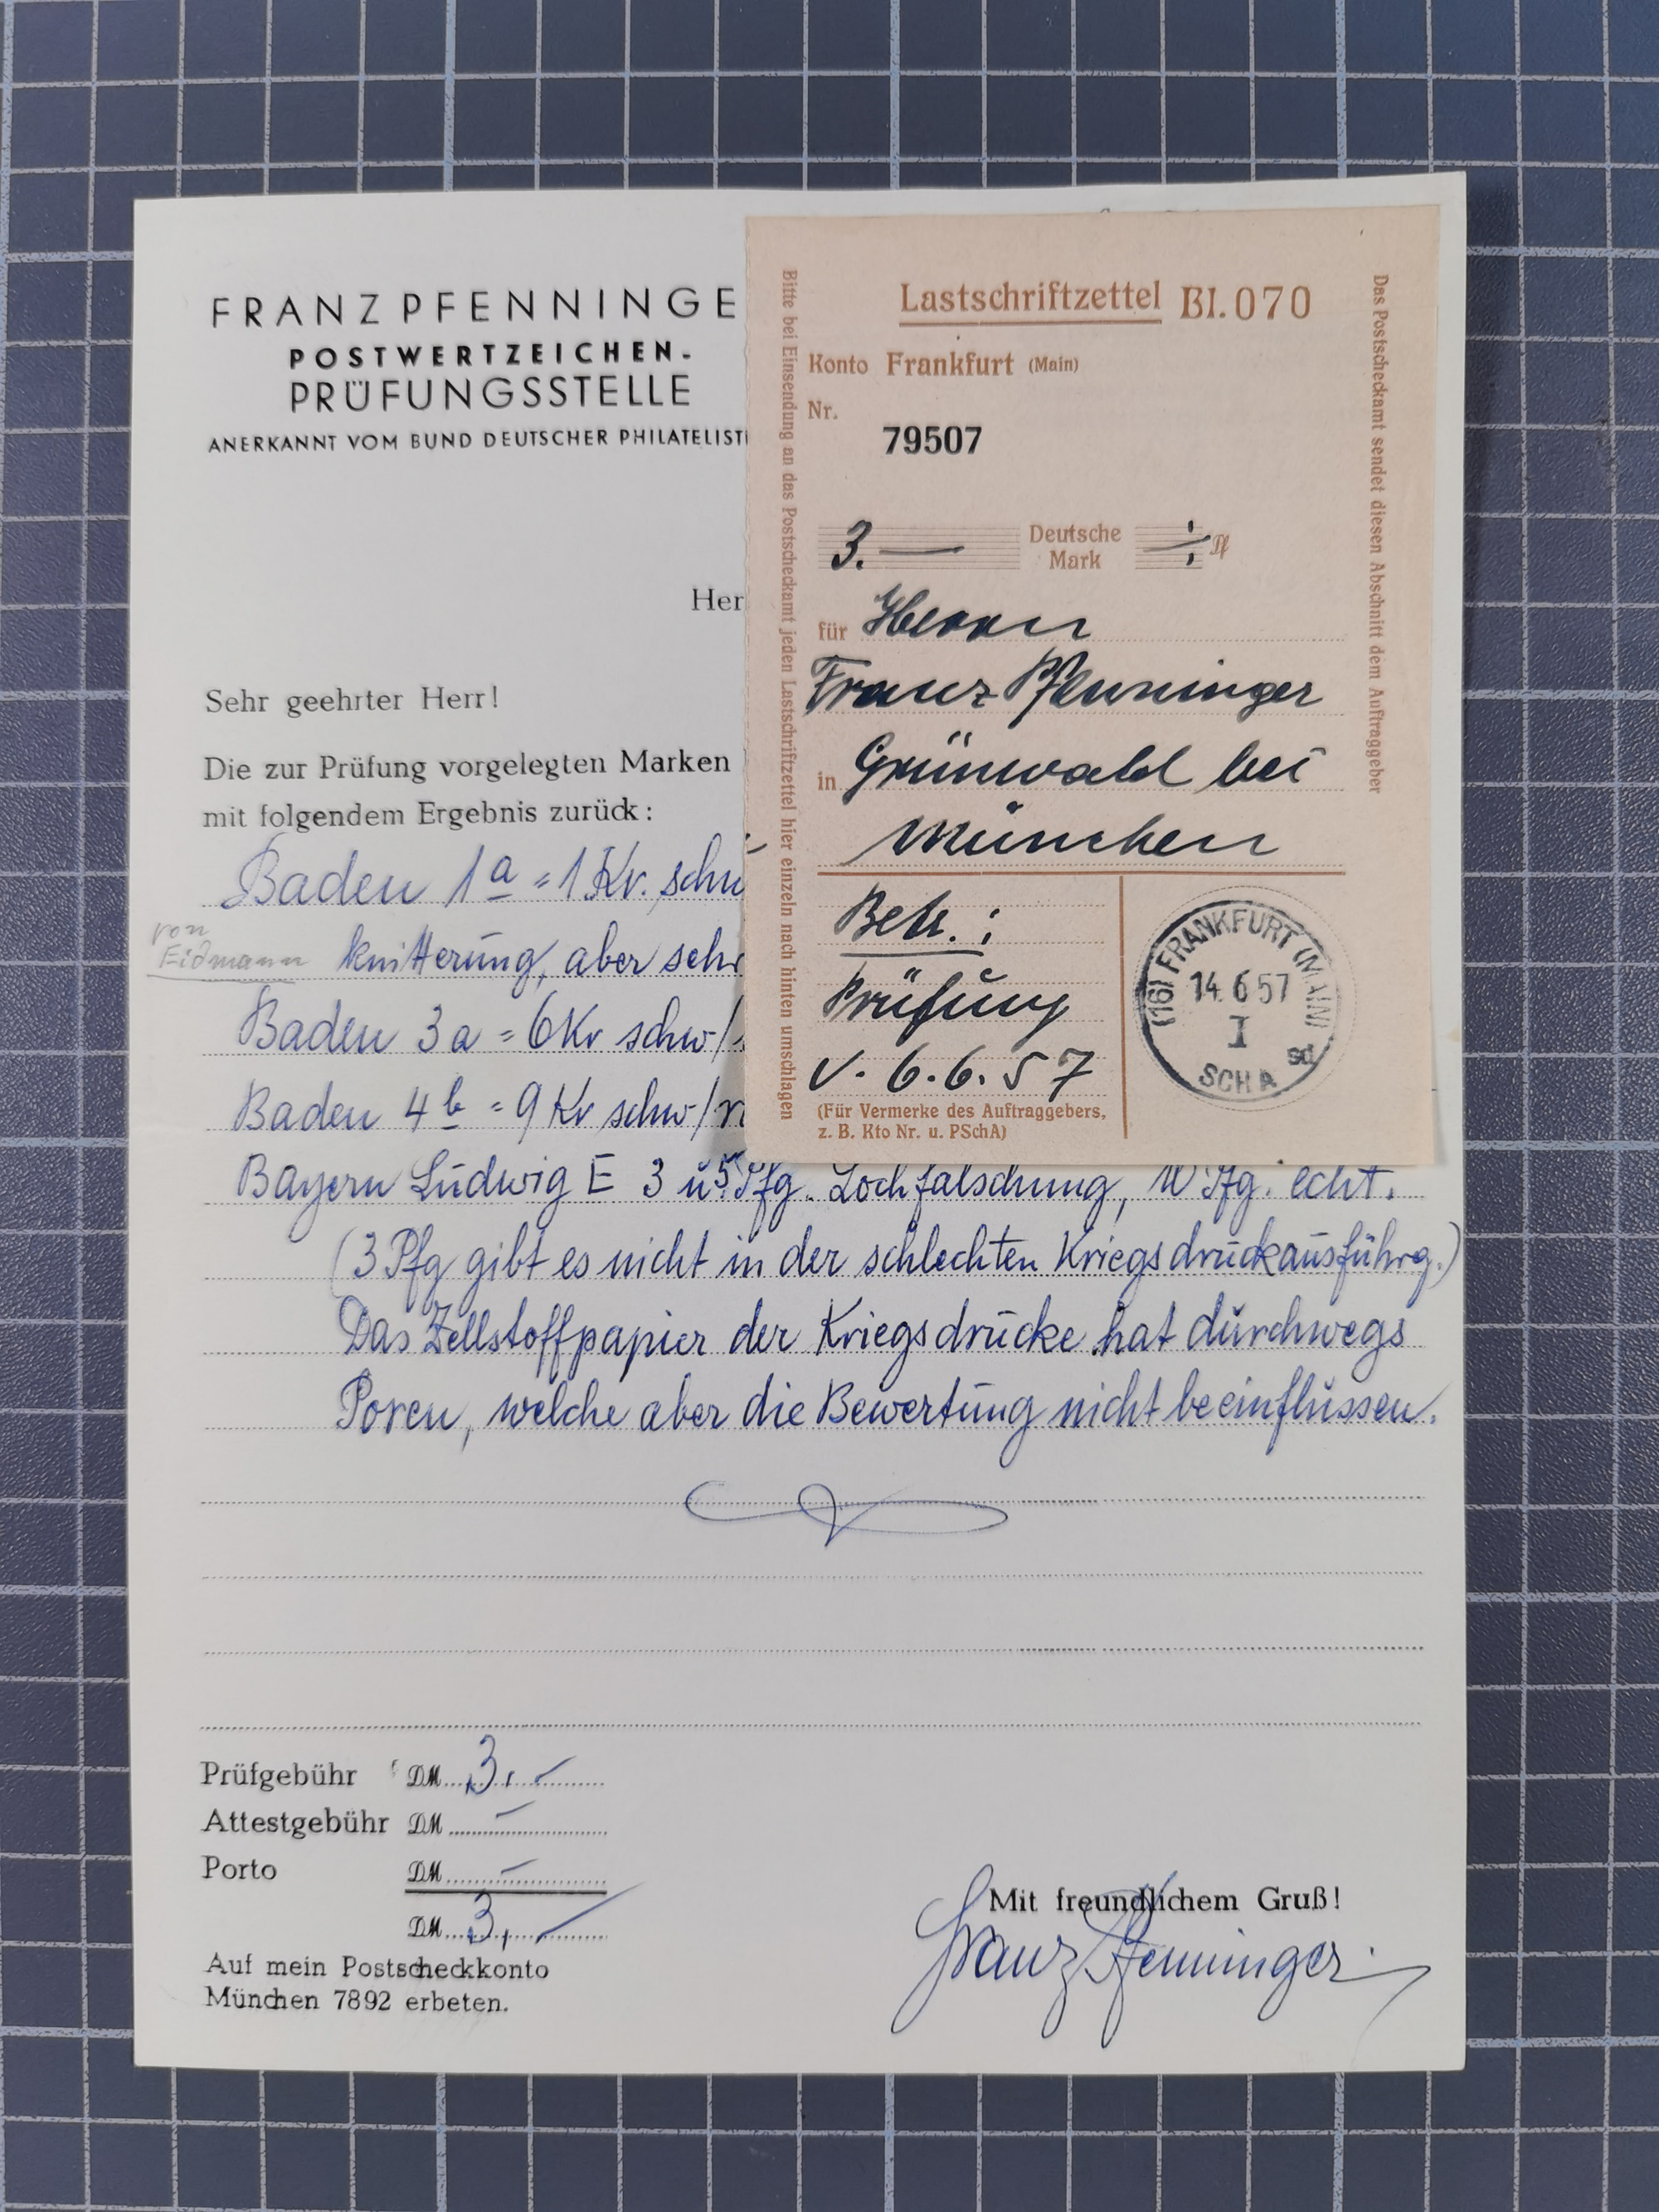 FRANZ PFENNINGE
POSTWERTZEICHEN-
PRÜFUNGSSTELLE
ANERKANNT VOM BUND DEUTSCHER PHILATELIST
Her
Sehr geehrter Herr!
Die zur Prüfung vorgelegten Marken
mit folgendem Ergebnis zurück:
Baden 1a = 1 Kr. schw
von
Eidmann
knitterung, aber sehr
Baden 3a = 6 Kr schw/
Baden 4b = 9 Kr schw/r
Bayern Ludwig E 3 u 5 Pfg. Lochfälschung, 10 Pfg. echt.
(3 Pfg gibt es nicht in der schlechten Kriegsdruckausführg.)
Das Zellstoffpapier der Kriegsdrucke hat durchwegs
Poren, welche aber die Bewertung nicht beeinflussen.
Prüfgebühr DM 3,-
Attestgebühr DM -
Porto DM -
DM 3,-
Auf mein Postscheckkonto
München 7892 erbeten.
Mit freundlichem Gruß!
Franz Pfenninger
Bitte bei Einsendung an das Postscheckamt jeden Lastschriftzettel hier einzeln nach hinten umschlagen
Lastschriftzettel Bl. 070
Konto Frankfurt (Main)
Nr.
79507
3.— Deutsche Mark Pf
für Herrn
Franz Pfenninger
in Grünwald bei
München
Betr.:
Prüfung
v. 6.6.57
(Für Vermerke des Auftraggebers,
z. B. Kto Nr. u. PSchA)
(16) FRANKFURT (MAIN)
14.6.57
I
sd
SCHA
Das Postscheckamt sendet diesen Abschnitt dem Auftraggeber